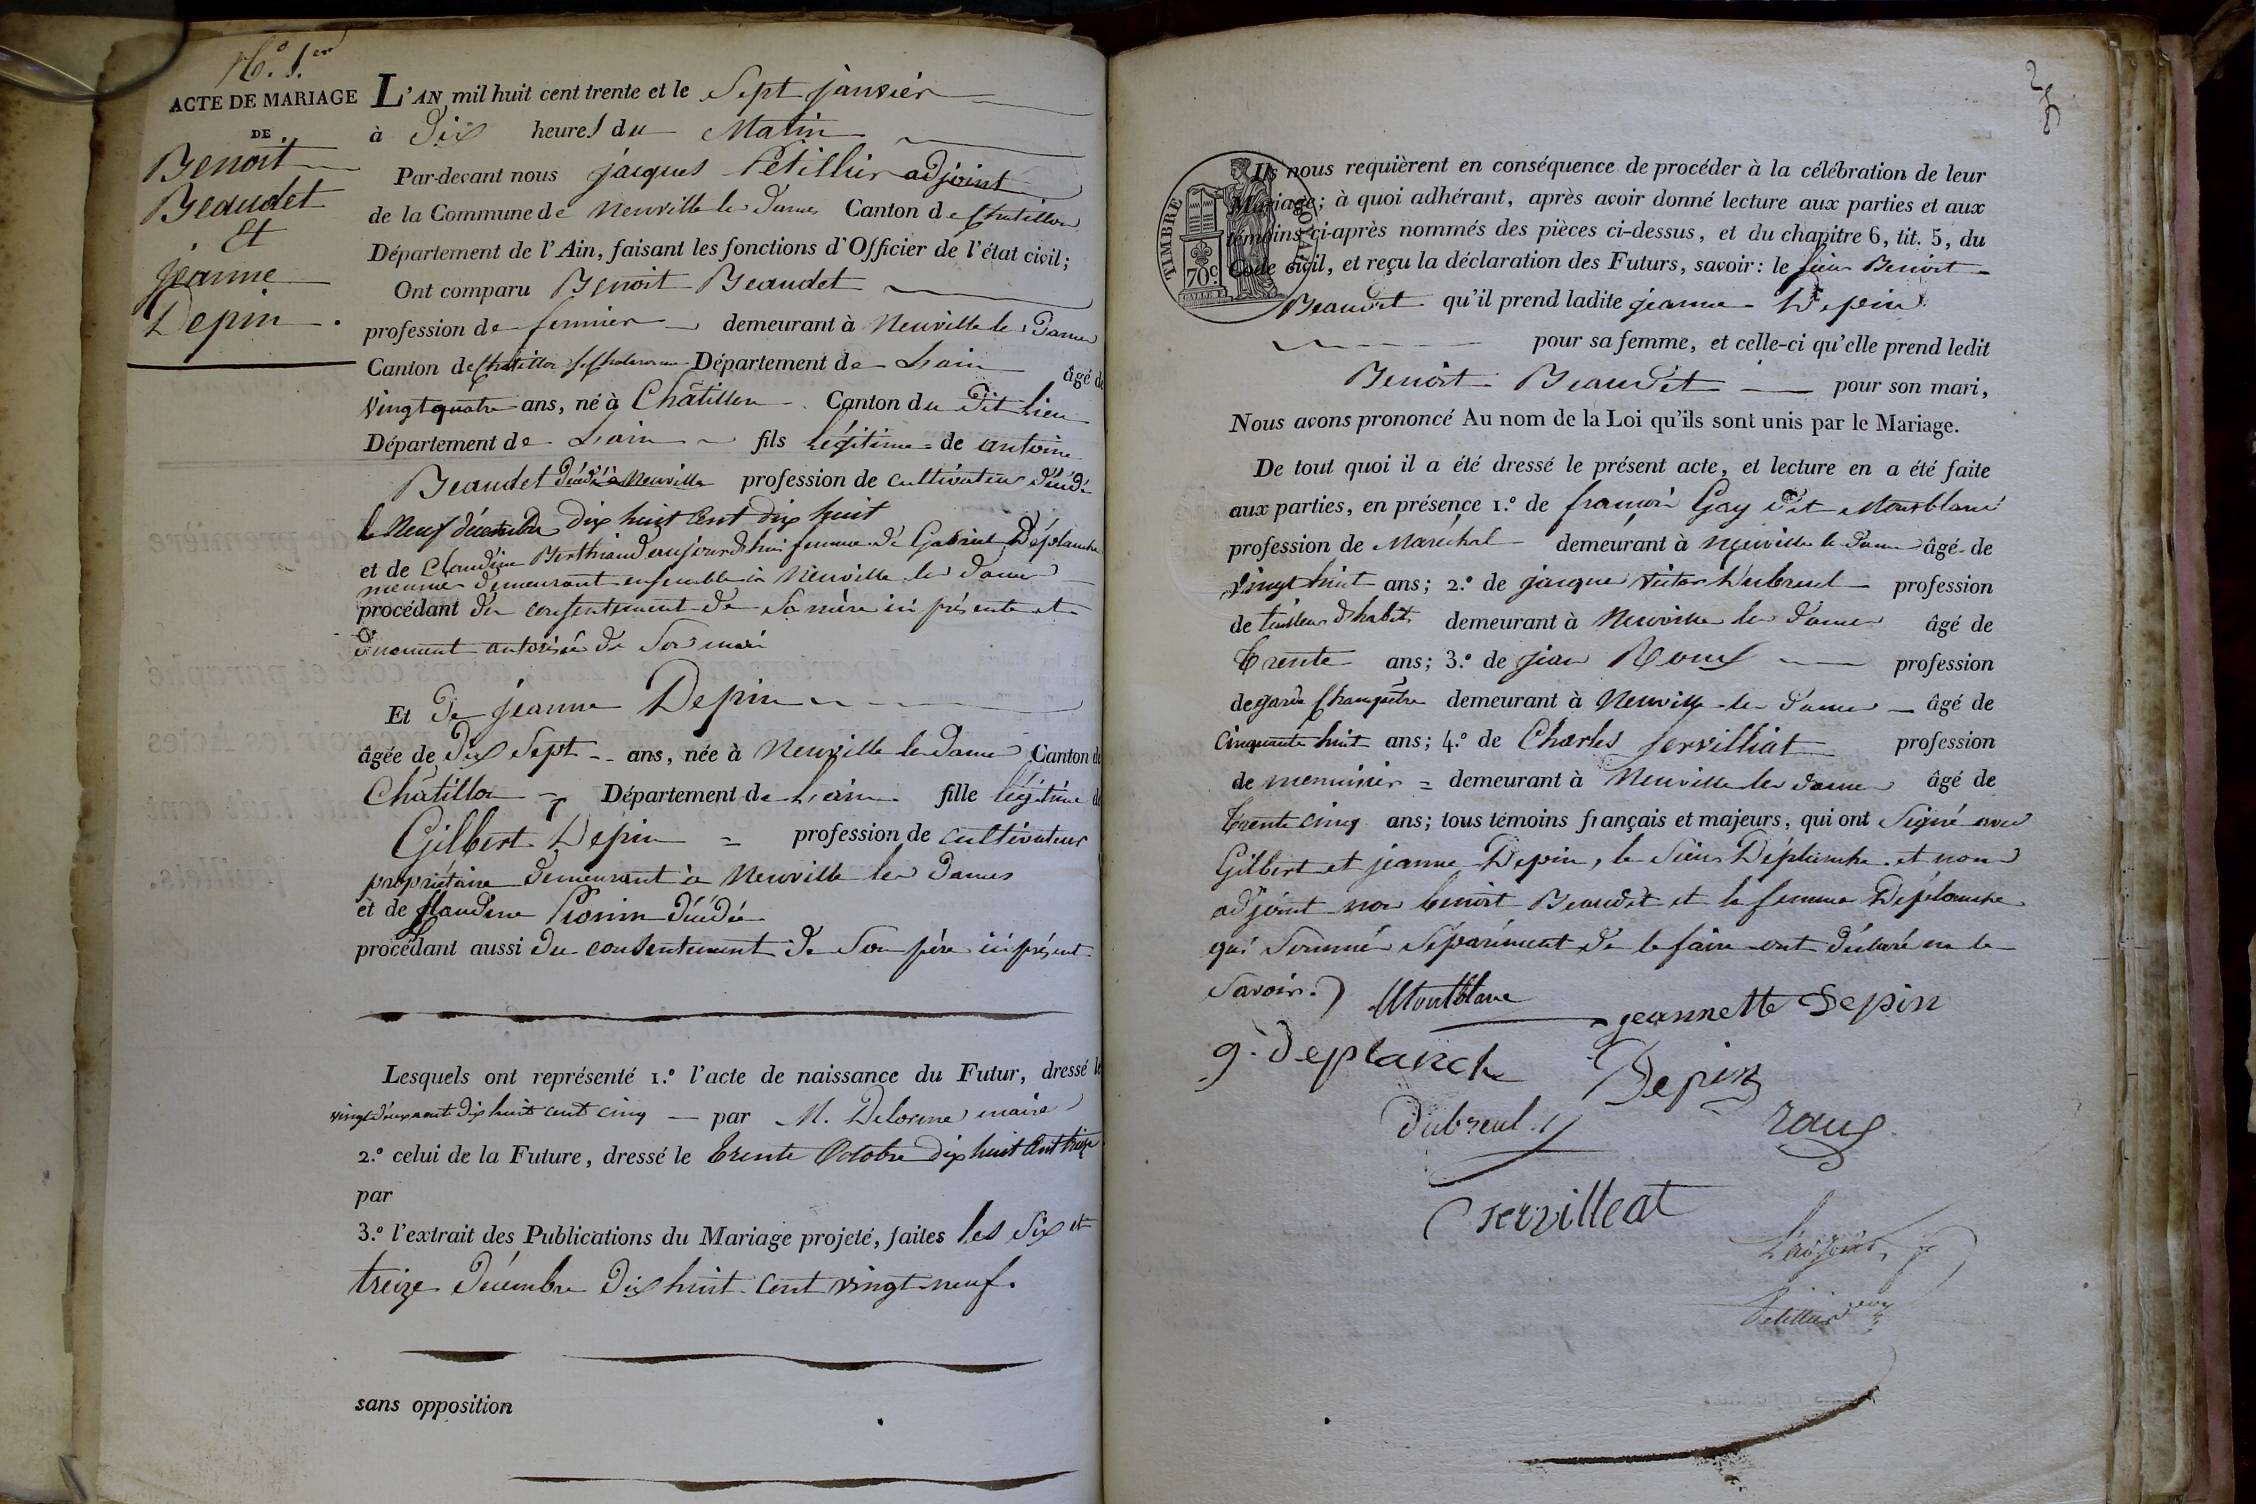 N.° 1.er
ACTE DE MARIAGE
DE
Benoit
Beaudet
Et
jeanne
Depin.
L'AN mil huit cent trente et le Sept janvier
à Dix heures du Matin
Par-devant nous jacques Petillier adjoint
de la Commune de Neuville les Dames Canton de Chatillon
Département de l'Ain, faisant les fonctions d'Officier de l'état civil;
Ont comparu Benoit Beaudet
profession de fermier demeurant à Neuville les Dames
Canton de Chatillon Département de L'ain âgé de
Vingt quatre ans, né à Châtillon Canton du Dit lieu
Département de L'ain fils légitime de antoine
Beaudet décédé à Neuville profession de cultivateur décédé
le Neuf décembre dix huit Cent dix huit
et de Claudine Berthiaud aujourdhui femme de Gabriel Déplanche
demeurant ensemble à Neuville les dames
procédant du consentement de Sa mère ici présente et
duement autorisée de Son mari
Et De jeanne Depin
âgée de Dix Sept ans, née à Neuville les Dames Canton de
Châtillon Département de L'ain fille légitime de
Gilbert Depin profession de cultivateur
propriétaire demeurant à Neuville les Dames
et de Claudine décédée
procédant aussi du consentement de Son père ici présent
Lesquels ont représenté 1.° l'acte de naissance du Futur, dressé le
vingt deux aout dix huit cent cinq par M. Delorme maire
2.° celui de la Future, dressé le trente Octobre dix huit Cent
par
3.° l'extrait des Publications du Mariage projeté, faites les Six et
treize Décembre Dix huit Cent vingt neuf.
sans opposition
2
TIMBRE ROYAL
70c
Ils nous requièrent en conséquence de procéder à la célébration de leur
Mariage; à quoi adhérant, après avoir donné lecture aux parties et aux
témoins ci-après nommés des pièces ci-dessus, et du chapitre 6, tit. 5, du
Code civil, et reçu la déclaration des Futurs, savoir: le Sieur Benoit
Beaudet qu'il prend ladite jeanne Depin
pour sa femme, et celle-ci qu'elle prend ledit
Benoit Beaudet pour son mari,
Nous avons prononcé Au nom de la Loi qu'ils sont unis par le Mariage.
De tout quoi il a été dressé le présent acte, et lecture en a été faite
aux parties, en présence 1.° de françois Gay dit Montblanc
profession de Maréchal demeurant à Neuville les Dames âgé de
Vingt huit ans; 2.° de jacque Victor Dubreul profession
de tailleur d'habits demeurant à Neuville les Dames âgé de
Trente ans; 3.° de jean Roux profession
de garde Champêtre demeurant à Neuville les dames âgé de
Cinquante huit ans; 4.° de Charles Servilliat profession
de menuisier demeurant à Neuville les dames âgé de
Trente cinq ans; tous témoins français et majeurs, qui ont Signé avec
Gilbert et jeanne Depin, le Sieur Déplanche et nous
adjoint non benoit Beaudet et la femme Déplanche
qui Sommés Séparément de le faire ont déclaré ne le
Savoir.
Montblanc
jeannette Depin
g. Deplanche
Depin
Dubreul
roux
C Servilleat
L'adjoint
Petillier